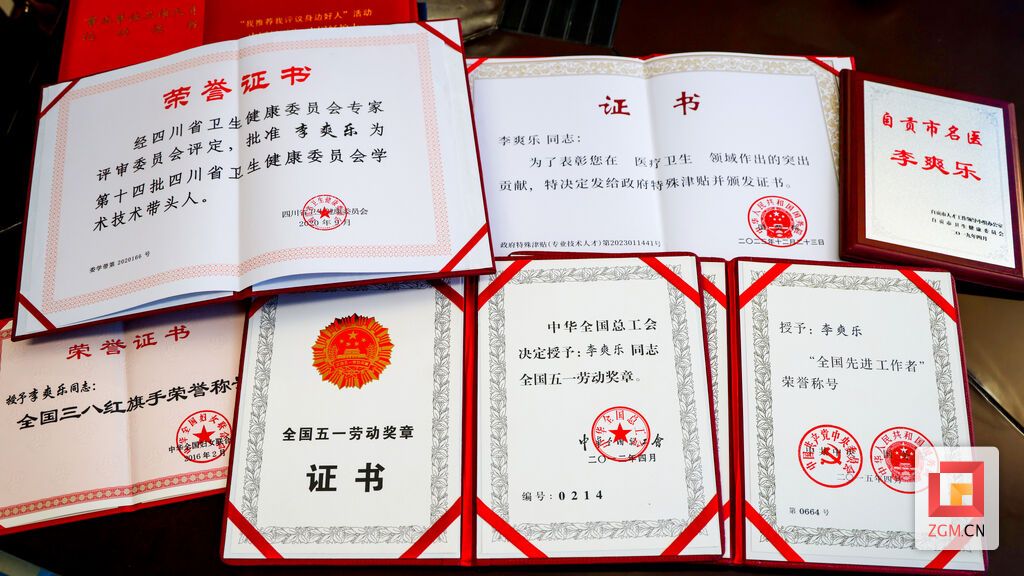 “我推荐我评议身边好人”活动
荣誉证书
经四川省卫生健康委员会专家
评审委员会评定，批准 李爽乐 为
第十四批四川省卫生健康委员会学
术技术带头人。
四川省卫生健康委员会
2020 年 9 月
委学带第 2020166 号
证 书
李爽乐 同志：
为了表彰您在 医疗卫生 领域作出的突出
贡献，特决定发给政府特殊津贴并颁发证书。
中华人民共和国国务院
二〇二三年十二月二十三日
政府特殊津贴(专业技术人才)第2023011441号
自贡市名医
李爽乐
自贡市人才工作领导小组办公室
自贡市卫生健康委员会
二〇一九年四月
荣誉证书
授予李爽乐同志：
全国三八红旗手荣誉称号
中华全国妇女联合会
2016 年 2 月
全国五一劳动奖章
证 书
中华全国总工会
决定授予：李爽乐 同志
全国五一劳动奖章。
中华全国总工会
二〇一二年四月
编号：0214
授予：李爽乐
“全国先进工作者”
荣誉称号
中国共产党中央委员会
中华人民共和国国务院
二〇一五年四月
第 0664 号
ZGM.CN